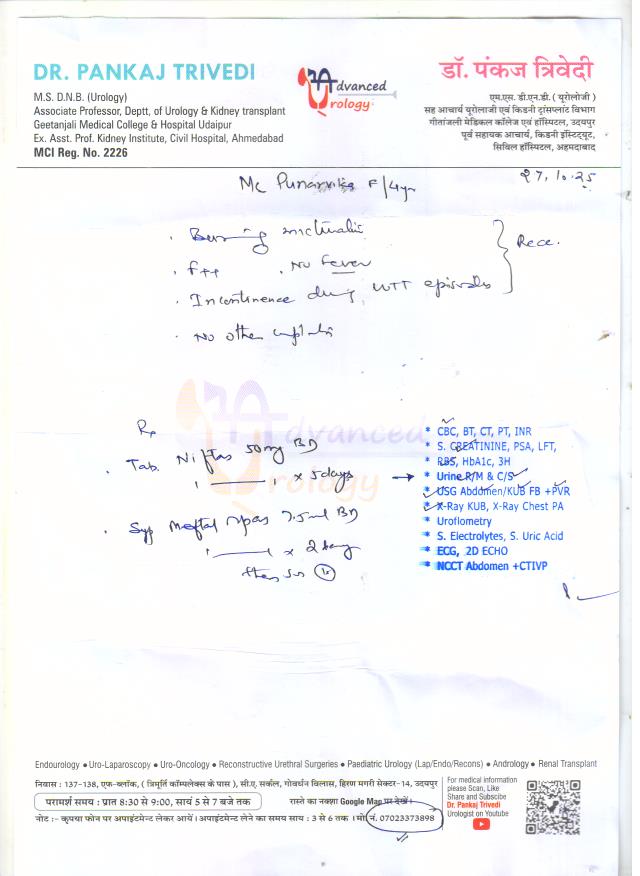 DR. PANKAJ TRIVEDI
M.S. D.N.B. (Urology)
Associate Professor, Deptt, of Urology & Kidney transplant
Geetanjali Medical College & Hospital Udaipur
Ex. Asst. Prof. Kidney Institute, Civil Hospital, Ahmedabad
MCI Reg. No. 2226
Advanced
Urology
डॉ. पंकज त्रिवेदी
एम.एस. डी.एन.डी. ( यूरोलोजी )
सह आचार्य यूरोलाजी एवं किडनी ट्रांसप्लांट विभाग
गीतांजली मेडिकल कॉलेज एवं हॉस्पिटल, उदयपुर
पूर्व सहायक आचार्य, किडनी इंस्टिट्यूट,
सिविल हॉस्पिटल, अहमदाबाद
27.10.25
F/4yr
Burning micturation
F++ . No Fever
Incontinence during UTI episodes
Rece.
No other complaints
Rx
Tab. Niftas 50mg BD
x 5days
Syp Meftal spas 7.5ml BD
x 2 day
then SOS
* CBC, BT, CT, PT, INR
* S. CREATININE, PSA, LFT,
* RBS, HbA1c, 3H
* Urine R/M & C/S
* USG Abdomen/KUB FB +PVR
* X-Ray KUB, X-Ray Chest PA
* Uroflometry
* S. Electrolytes, S. Uric Acid
* ECG, 2D ECHO
* NCCT Abdomen +CTIVP
Advanced
Urology
Endourology ● Uro-Laparoscopy ● Uro-Oncology ● Reconstructive Urethral Surgeries ● Paediatric Urology (Lap/Endo/Recons) ● Andrology ● Renal Transplant
निवास : 137-138, एफ-ब्लॉक, ( त्रिमूर्ति कॉम्पलेक्स के पास ), सी.ए. सर्कल, गोवर्धन विलास, हिरण मगरी सेक्टर-14, उदयपुर
परामर्श समय : प्रात 8:30 से 9:00, सायं 5 से 7 बजे तक
रास्ते का नक्शा Google Map पर देखें।
नोट :- कृपया फोन पर अपाइंटमेन्ट लेकर आयें। अपाइंटमेन्ट लेने का समय साय : 3 से 6 तक । मो. नं. 07023373898
For medical information
please Scan, Like
Share and Subscibe
Dr. Pankaj Trivedi
Urologist on Youtube